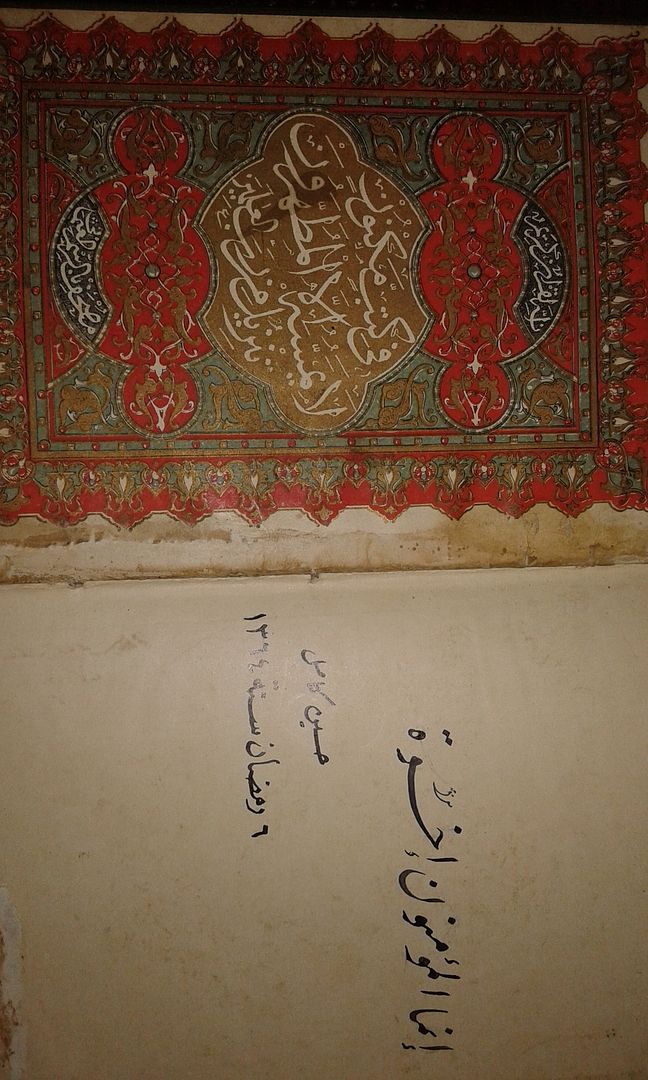 إنه لقرآن كريم
في كتب مكنون
لا يمسه إلا المطهرون
تنزيل من رب العالمين
إنما المؤمنون إخوة
حسين كامل
٦ رمضان سنة